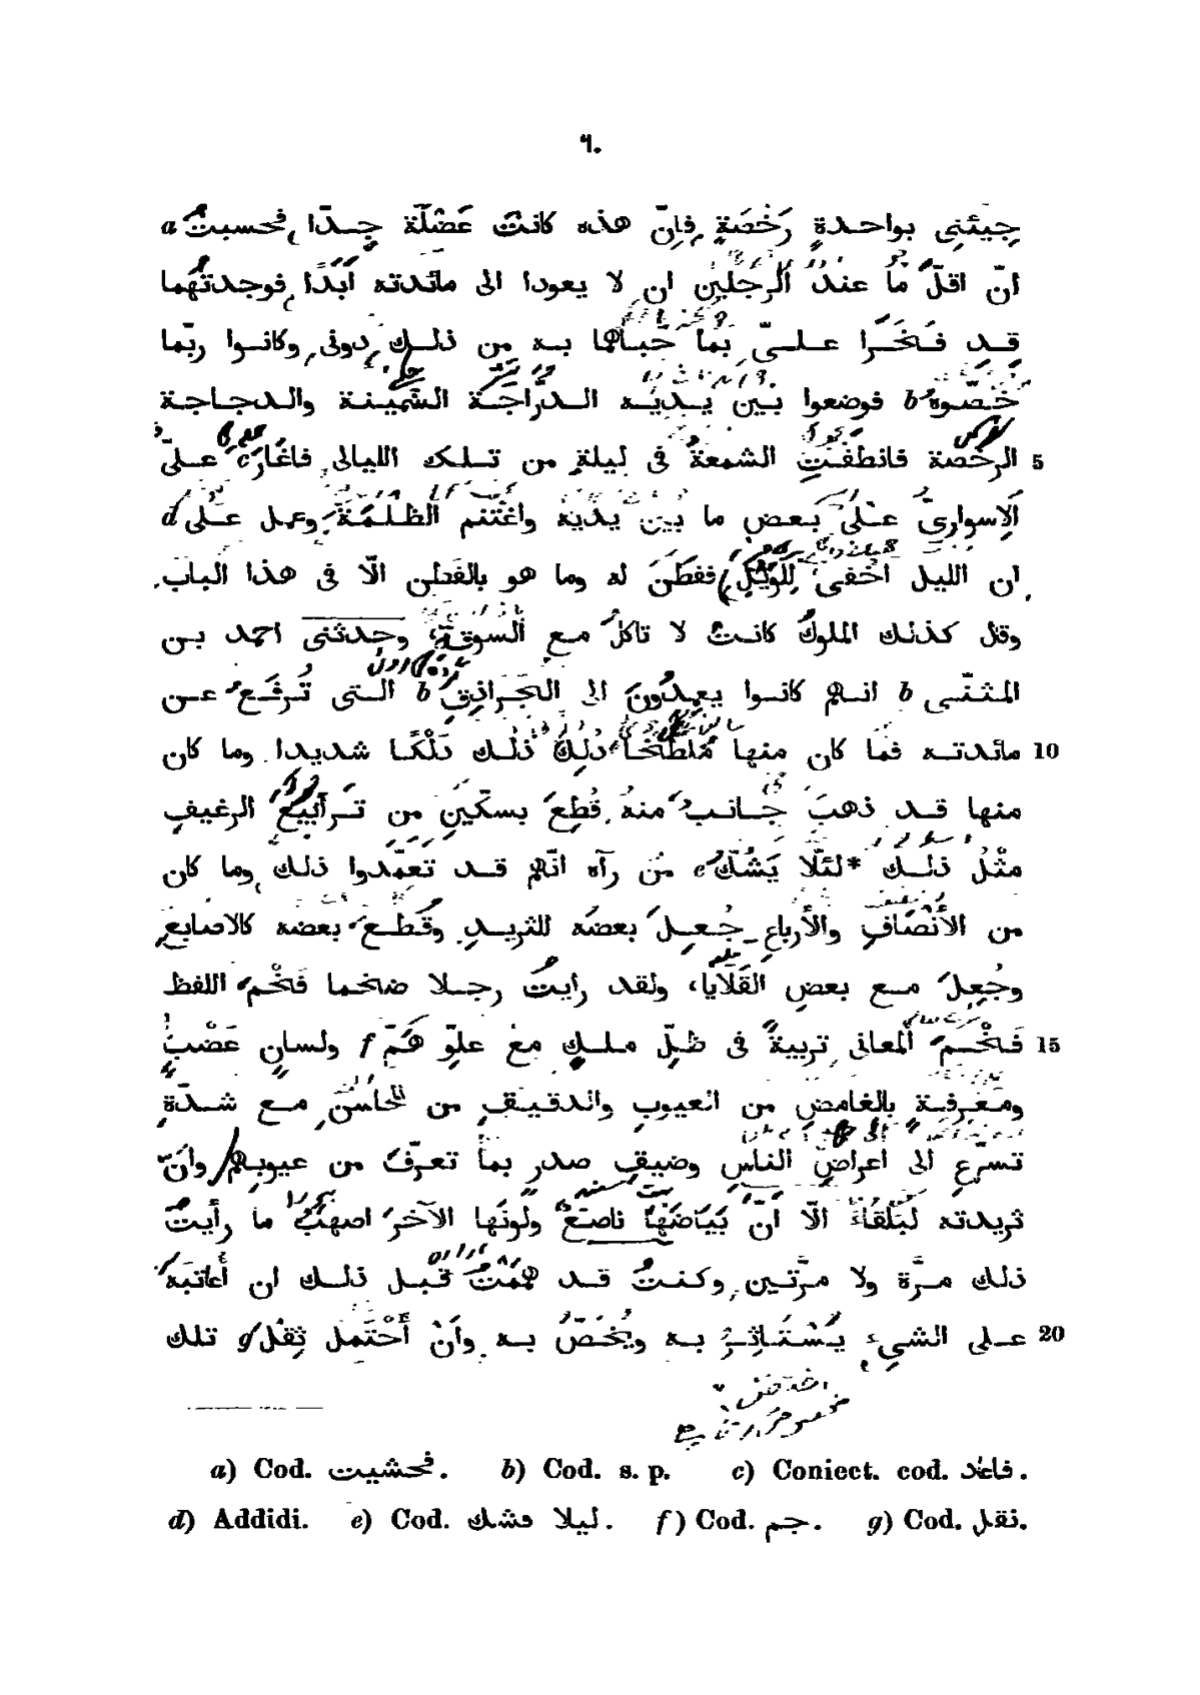 ٦٠
جِيئَنِى بواحدةٍ رَخْصَةٍ فإنّ هذه كانت عَضْلَةً جِدّا فحسبتُ a
انّ اقلّ ما عند الرجلين ان لا يعودا الى مائدته أبدًا فوجدتُهما
قد فَخَرا علىّ بما حَباهما به من ذلك دونى وكانوا ربّما
خَصّوه b فوضعوا بين يديه الدرّاجة السَّمينة والدجاجة
5 الرخصة فانطفت الشمعة فى ليلة من تلك الليالى فاغار c علىّ
الاسوارىّ على بعض ما بين يديه واغتنم الظلمة وعمل على d
ان الليل اخفى للويل ففطن له وما هو بالفطن الّا فى هذا الباب
وقال كذلك الملوكُ كانت لا تاكل مع السوقة، وحدثنى احمد بن
المثنّى b انهم كانوا يعمدون الى الجَراذِق b التى تُرفَع عن
10 مائدته فما كان منها مُلطَّخًا دُلِكَ ذلك دَلْكًا شديدا وما كان
منها قد ذهب جانب منه قُطِعَ بسكّين من تَرابيع الرغيف
مثلُ ذلك *لئلّا يَشُكّ e مَن رآه انّهم قد تعمّدوا ذلك وما كان
من الأنصاف والأرباع جُعِل بعضه للثريد وقُطّع بعضه كالاصابع
وجُعِل مع بعض القَلايا، ولقد رأيتُ رجلا ضخما فَخْمَ اللفظ
15 فَخْمَ المعانى تربيةً فى ظلّ ملك مع علوّ هَمّ f ولسانٍ عَضْبٍ
ومعرفة بالغامض من العيوب والدقيق من المحاسن مع شدّة
تسرّع الى اعراض الناس وضيق صدر بما تعرّف من عيوبهم وانّ
ثريدته لبَلقاءُ الّا أنّ بَياضَها ناصع ولونَها الآخر اصهب ما رأيتُ
ذلك مرّة ولا مرّتين وكنتُ قد هممتُ قبل ذلك ان أعاتبَه
20 على الشىء يَسْتأثِر به ويُخَصّ به وأَنْ أَحْتَمِل ثِقْل g تلك
a) Cod. فحشيت. b) Cod. s. p. c) Coniect. cod. فاعاد.
d) Addidi. e) Cod. ليلا مشك. f) Cod. جم. g) Cod. نقل.